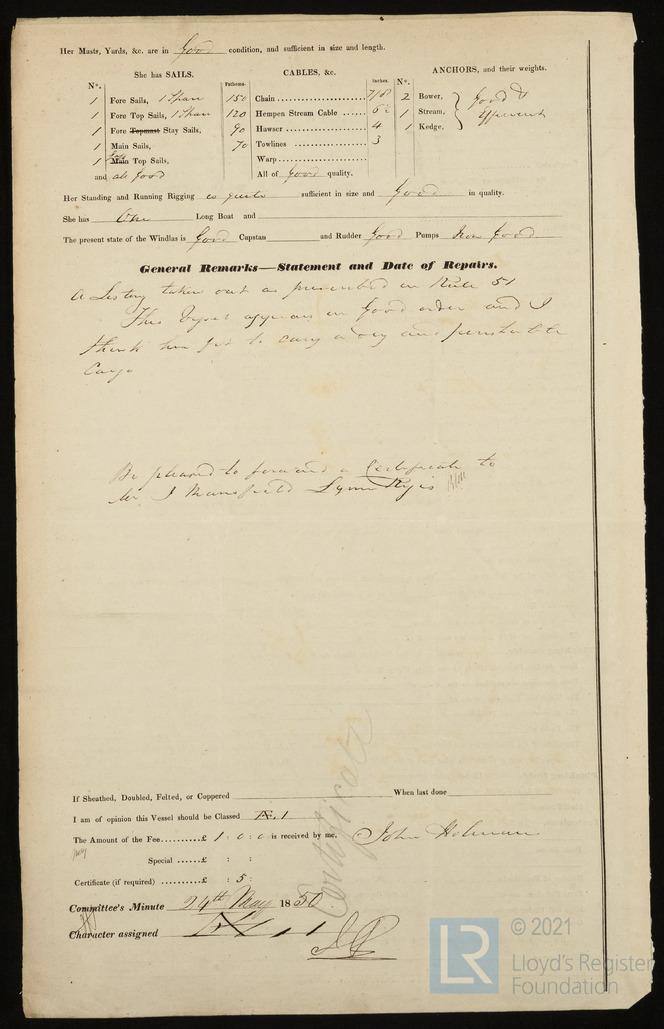 Her Masts, Yards, &c. are in Good condition, and sufficient in size and length.
She has SAILS. CABLES, &c. ANCHORS, and their weights.
N°. Fathoms. Inches. N°.
1 Fore Sails, 1 Spare 150 Chain 7/8 2 Bower, Good &
1 Fore Top Sails, 1 Spare 120 Hempen Stream Cable 6½ 1 Stream, Efficient
1 Fore Topmast Stay Sails, 90 Hawser 4 1 Kedge,
1 Main Sails, 70 Towlines 3
1 Main Top Sails, Warp
and all Good All of Good quality.
Her Standing and Running Rigging is quite sufficient in size and Good in quality.
She has One Long Boat and
The present state of the Windlas is Good Capstan and Rudder Good Pumps Good
General Remarks—Statement and Date of Repairs.
A Listing taken out as prescribed in Rule 51
This Vessel appears in Good order and I
think her fit to carry a dry and perishable
Cargo
Be pleased to forward a Certificate to
Mr J Mansfield Lyme Regis
Certificate
If Sheathed, Doubled, Felted, or Coppered When last done
I am of opinion this Vessel should be Classed A. 1
The Amount of the Fee £ 1 : 0 : 0 is received by me, John Holman
Special £ : :
Certificate (if required) £ : 5 :
Committee's Minute 24th May 1850
Character assigned
LR © 2021
Lloyd's Register
Foundation